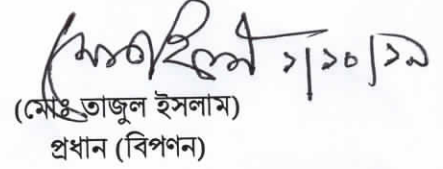 ১/১০/১৯
(মোঃ তাজুল ইসলাম)
প্রধান (বিপণন)